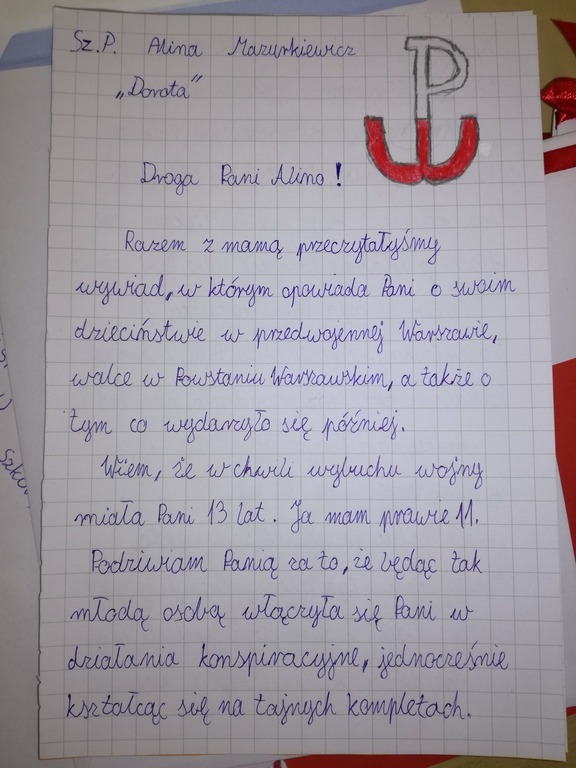 Sz.P. Alina Mazurkiewicz
„Dorota”
Droga Pani Alino!
Razem z mamą przeczytałyśmy
wywiad, w którym opowiada Pani o swoim
dzieciństwie w przedwojennej Warszawie,
walce w Powstaniu Warszawskim, a także o
tym co wydarzyło się później.
Wiem, że w chwili wybuchu wojny
miała Pani 13 lat. Ja mam prawie 11.
Podziwiam Panią za to, że będąc tak
młodą osobą włączyła się Pani w
działania konspiracyjne, jednocześnie
kształcąc się na tajnych kompletach.